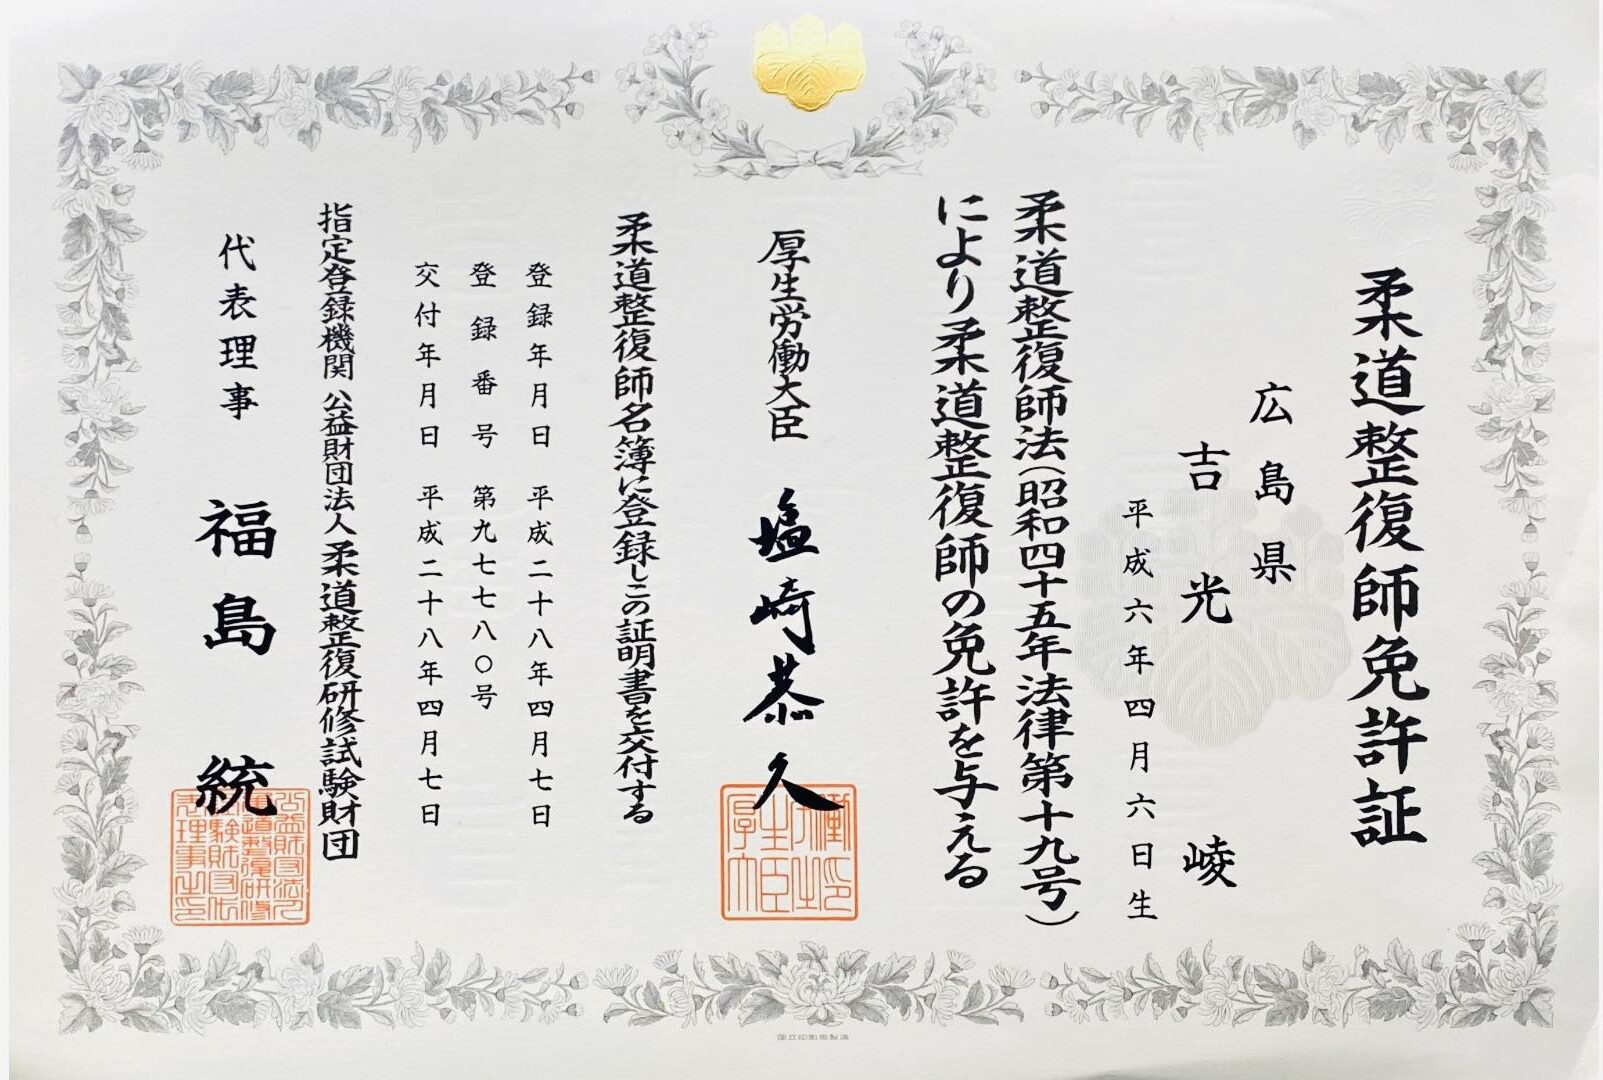 柔道整復師免許証
広島県
吉光 崚
平成六年四月六日生
柔道整復師法(昭和四十五年法律第十九号)
により柔道整復師の免許を与える
厚生労働大臣 塩崎恭久
柔道整復師名簿に登録しこの証明書を交付する
登録年月日 平成二十八年四月七日
登録番号 第九七七八〇号
交付年月日 平成二十八年四月七日
指定登録機関 公益財団法人 柔道整復研修試験財団
代表理事 福島 統
国立印刷局製造